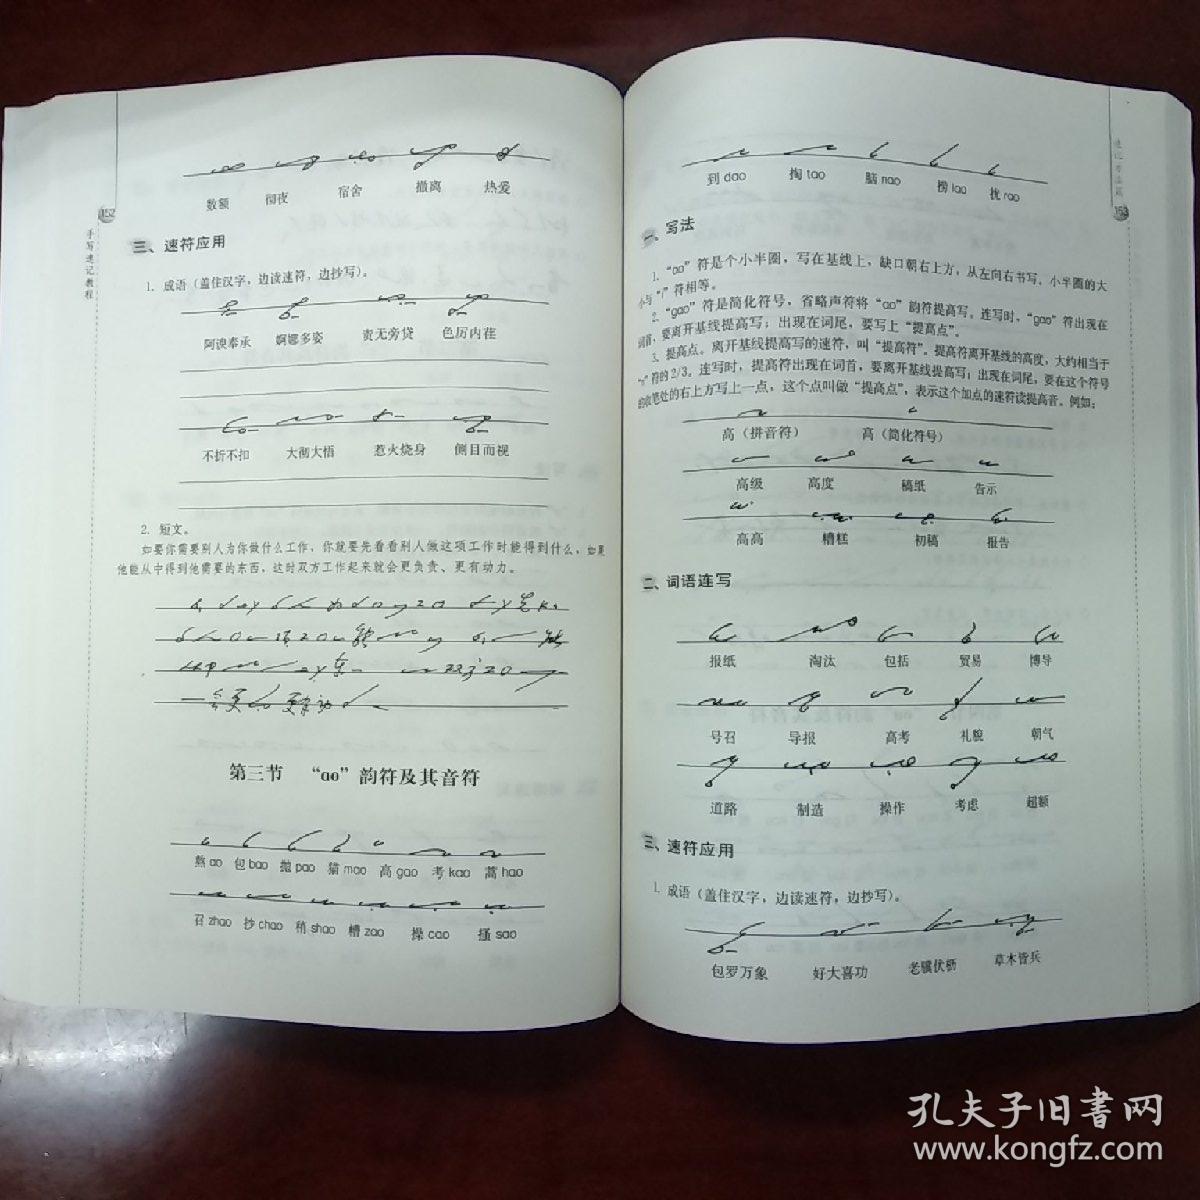 152
手写速记教程
数额 彻夜 宿舍 撤离 热爱
三、速符应用
1. 成语（盖住汉字，边读速符，边抄写）。
阿谀奉承 婀娜多姿 责无旁贷 色厉内荏
不折不扣 大彻大悟 惹火烧身 侧目而视
2. 短文。
如要你需要别人为你做什么工作，你就要先看看别人做这项工作时能得到什么，如果
他能从中得到他需要的东西，这时双方工作起来就会更负责、更有动力。
第三节 “ao”韵符及其音符
熬ao 包bao 抛pao 猫mao 高gao 考kao 蒿hao
召zhao 抄chao 稍shao 糟zao 操cao 搔sao
到dao 掏tao 脑nao 捞lao 扰rao
一、写法
1. “ao”符是个小半圈，写在基线上，缺口朝右上方，从左向右书写，小半圈的大
小与“i”符相等。
2. “gao”符是简化符号，省略声符将“ao”韵符提高写。连写时，“gao”符出现在
词首，要离开基线提高写；出现在词尾，要写上“提高点”。
3. 提高点。离开基线提高写的速符，叫“提高符”。提高符离开基线的高度，大约相当于
符的2/3。连写时，提高符出现在词首，要离开基线提高写；出现在词尾，要在这个符号
的收笔处的右上方写上一点，这个点叫做“提高点”，表示这个加点的速符读提高音。例如：
高（拼音符） 高（简化符号）
高级 高度 稿纸 告示
高高 糟糕 初稿 报告
二、词语连写
报纸 淘汰 包括 贸易 博导
号召 导报 高考 礼貌 朝气
道路 制造 操作 考虑 超额
三、速符应用
1. 成语（盖住汉字，边读速符，边抄写）。
包罗万象 好大喜功 老骥伏枥 草木皆兵
孔夫子旧书网
www.kongfz.com